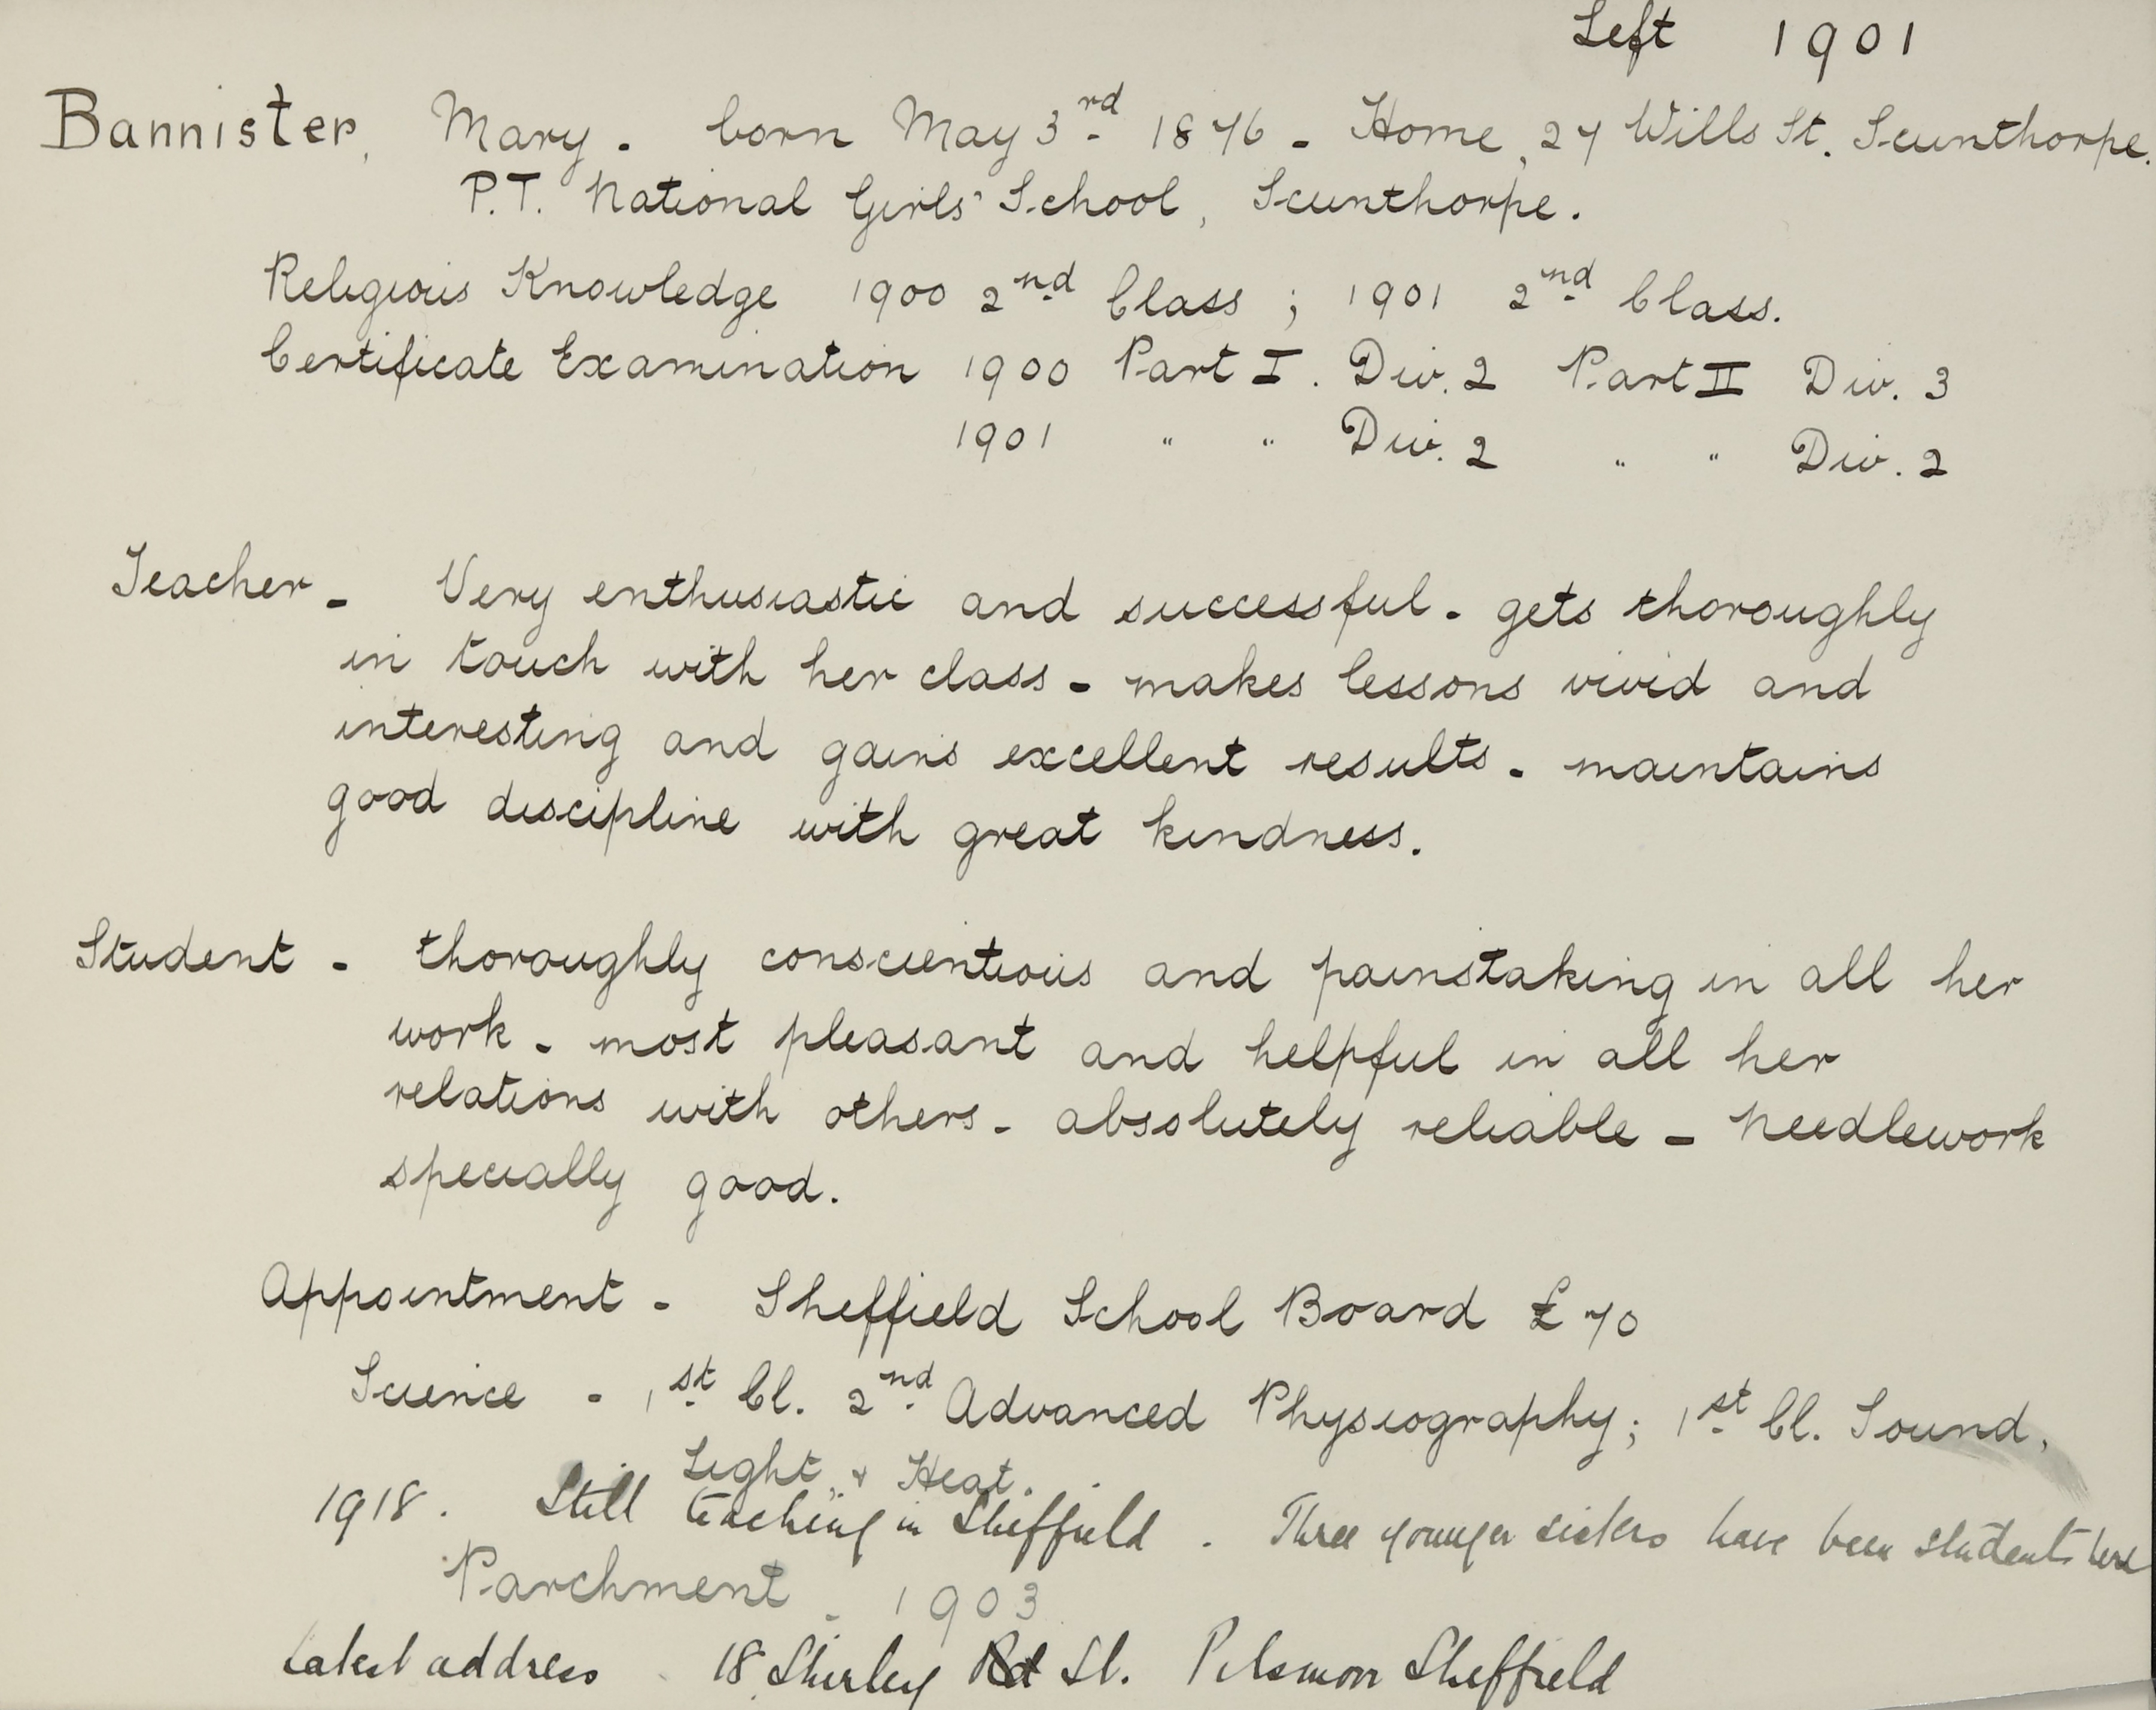 Left 1901
Bannister, Mary. born May 3rd 1876 - Home, 27 Wills St. Scunthorpe.
P.T. National Girls' School, Scunthorpe.
Religious Knowledge 1900 2nd Class ; 1901 2nd Class.
Certificate Examination 1900 Part I. Div. 2 Part II Div. 3
1901 " " Div. 2 " " Div. 2
Teacher - Very enthusiastic and successful - gets thoroughly
in touch with her class - makes lessons vivid and
interesting and gains excellent results - maintains
good discipline with great kindness.
Student - thoroughly conscientious and painstaking in all her
work - most pleasant and helpful in all her
relations with others - absolutely reliable - Needlework
specially good.
Appointment - Sheffield School Board £70
Science - 1st Cl. 2nd Advanced Physiography; 1st Cl. Sound,
Light, & Heat.
1918. Still teaching in Sheffield. Three younger sisters have been students here
Parchment - 1903
Latest address 18 Shirley Rd St. Pitsmoor Sheffield